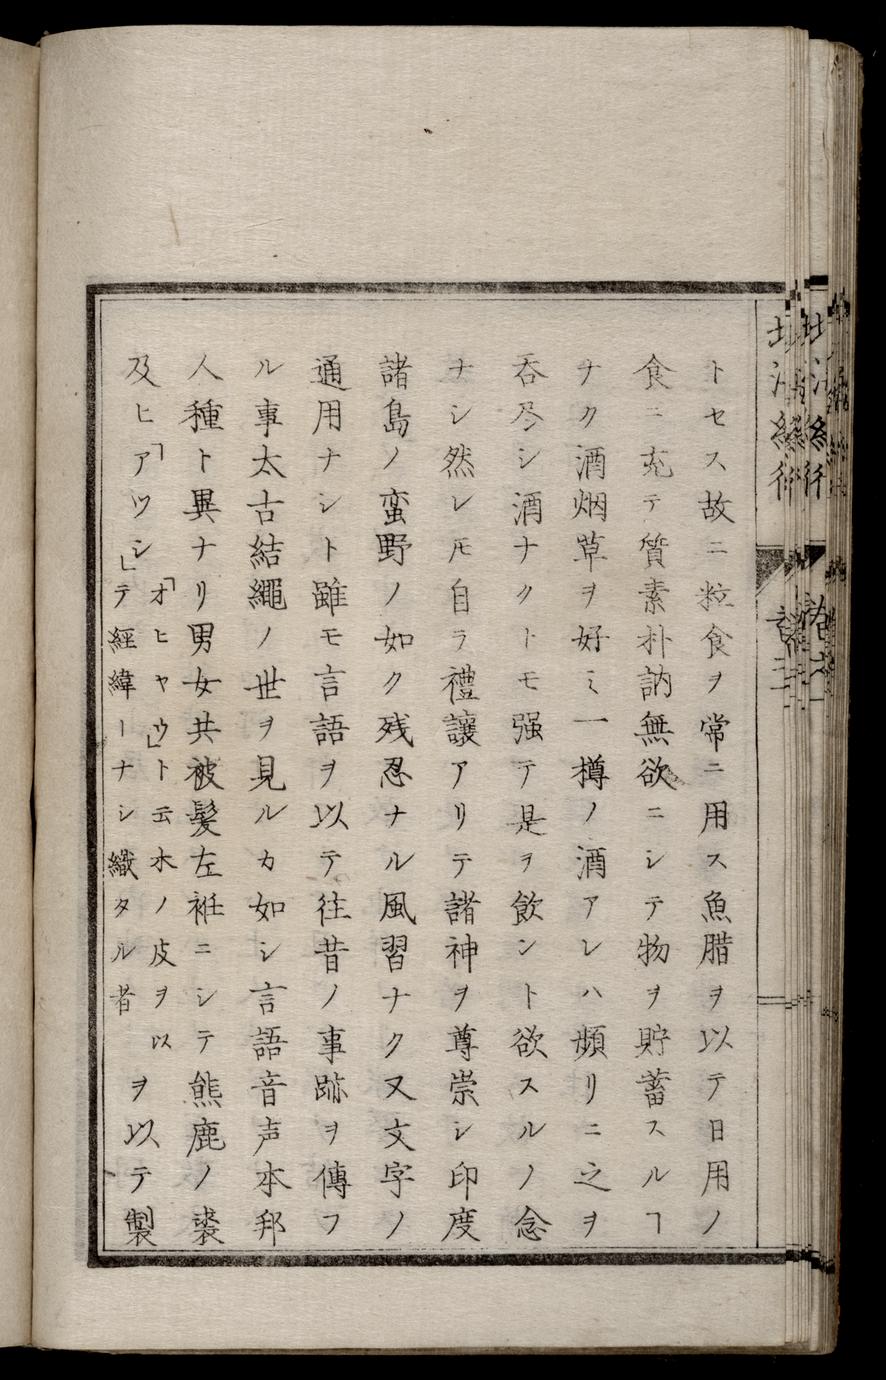 トセス故ニ粒食ヲ常ニ用ス魚腊ヲ以テ日用ノ
食ニ充テ質素朴訥無欲ニシテ物ヲ貯蓄スルヿ
ナク酒烟草ヲ好ミ一樽ノ酒アレハ頻リニ之ヲ
呑尽シ酒ナクトモ强テ是ヲ飲ント欲スルノ念
ナシ然レ𪜈自ラ禮讓アリテ諸神ヲ尊崇シ印度
諸島ノ蛮野ノ如ク残忍ナル風習ナク又文字ノ
通用ナシト雖モ言語ヲ以テ往昔ノ事跡ヲ傳フ
ル事太古結繩ノ世ヲ見ルカ如シ言語音声本邦
人種ト異ナリ男女共被髪左衽ニシテ熊鹿ノ裘
及ヒ「アツシ」
「オヒヤウ」ト云木ノ皮ヲ以
テ經緯ーナシ織タル者
ヲ以テ製